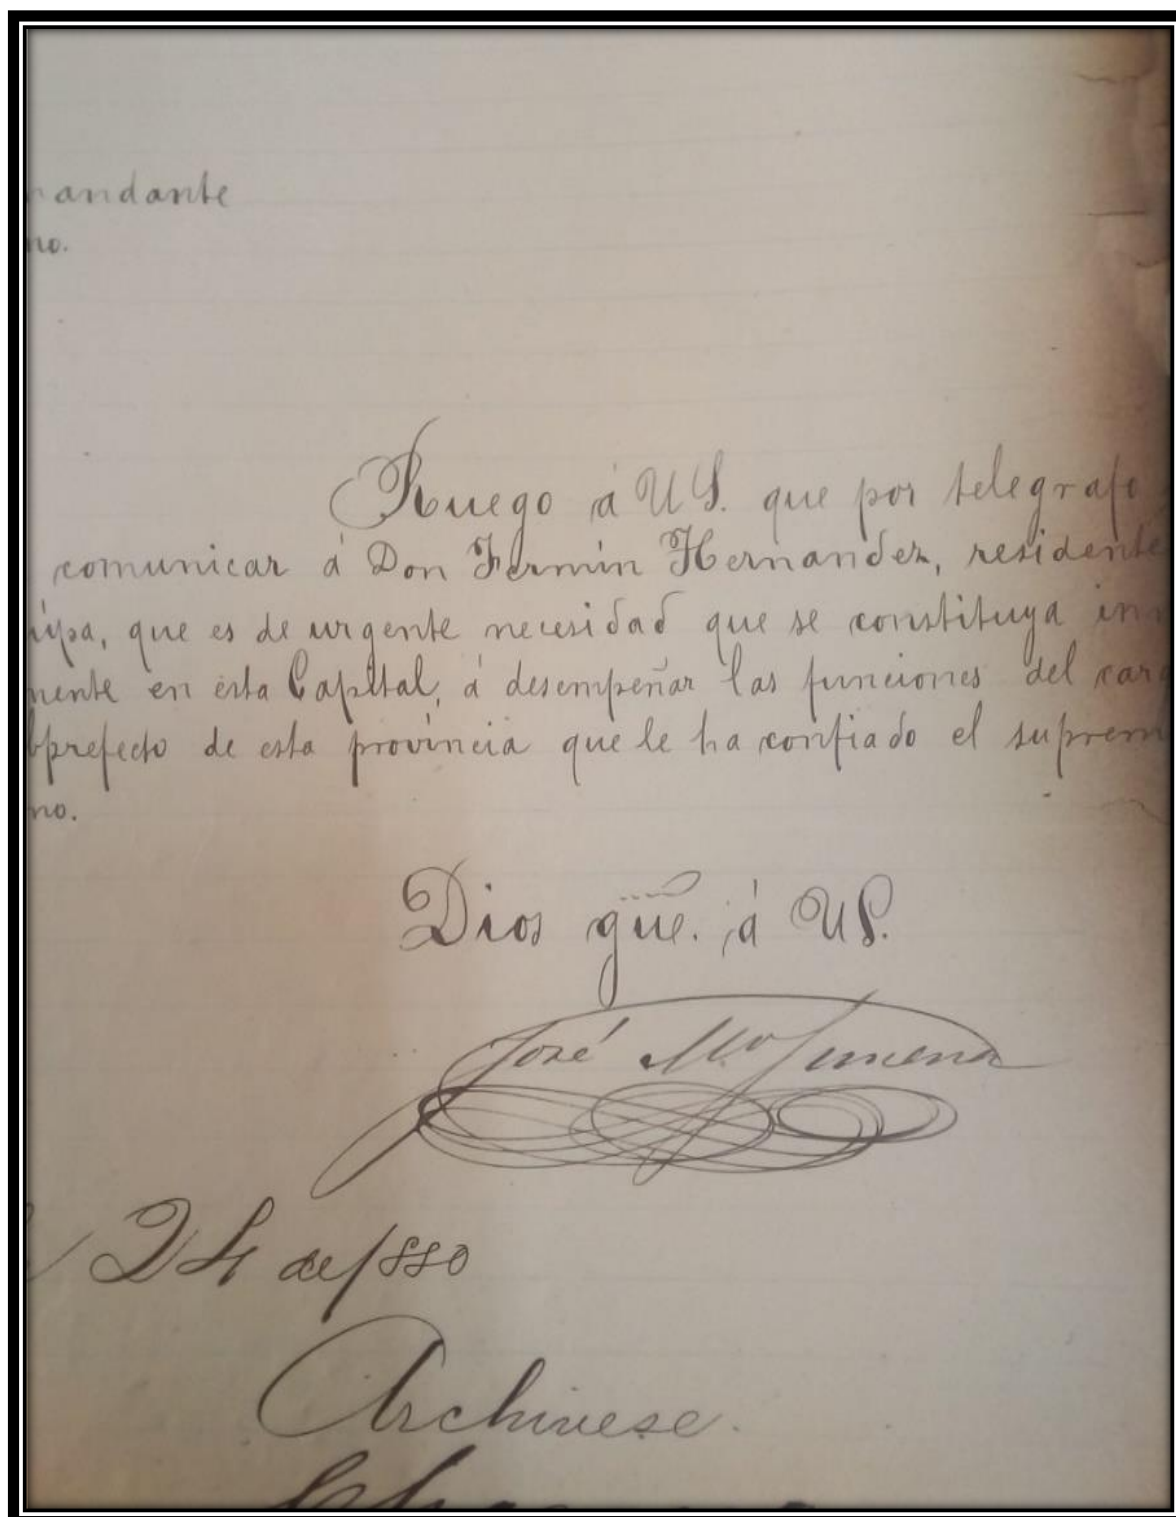 mandante
no.
Ruego á US. que por telegrafo
comunicar á Don Fermín Hernandez, residente
uipa, que es de urgente necesidad que se constituya in
mente en esta Capital, á desempeñar las funciones del carg
bprefecto de esta província que le ha confiado el suprem
no.
Dios güe. á US.
José Ma
24 de 1880
Archivese.